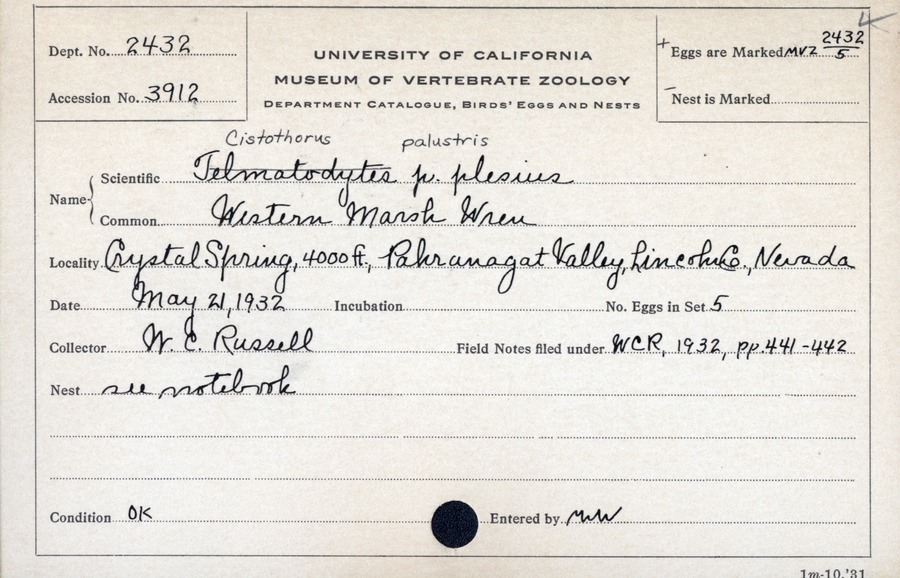 4
Dept. No. 2432
UNIVERSITY OF CALIFORNIA
+ Eggs are Marked MVZ 2432/5
MUSEUM OF VERTEBRATE ZOOLOGY
Accession No. 3912
DEPARTMENT CATALOGUE, BIRDS' EGGS AND NESTS
– Nest is Marked
Cistothorus palustris
Name { Scientific Telmatodytes p. plesius
Common Western Marsh Wren
Locality Crystal Spring, 4000 ft., Pahranagat Valley, Lincoln Co., Nevada
Date May 21, 1932 Incubation No. Eggs in Set 5
Collector W. C. Russell Field Notes filed under WCR, 1932, pp. 441-442
Nest see notebook
Condition OK Entered by
1m-10,'31